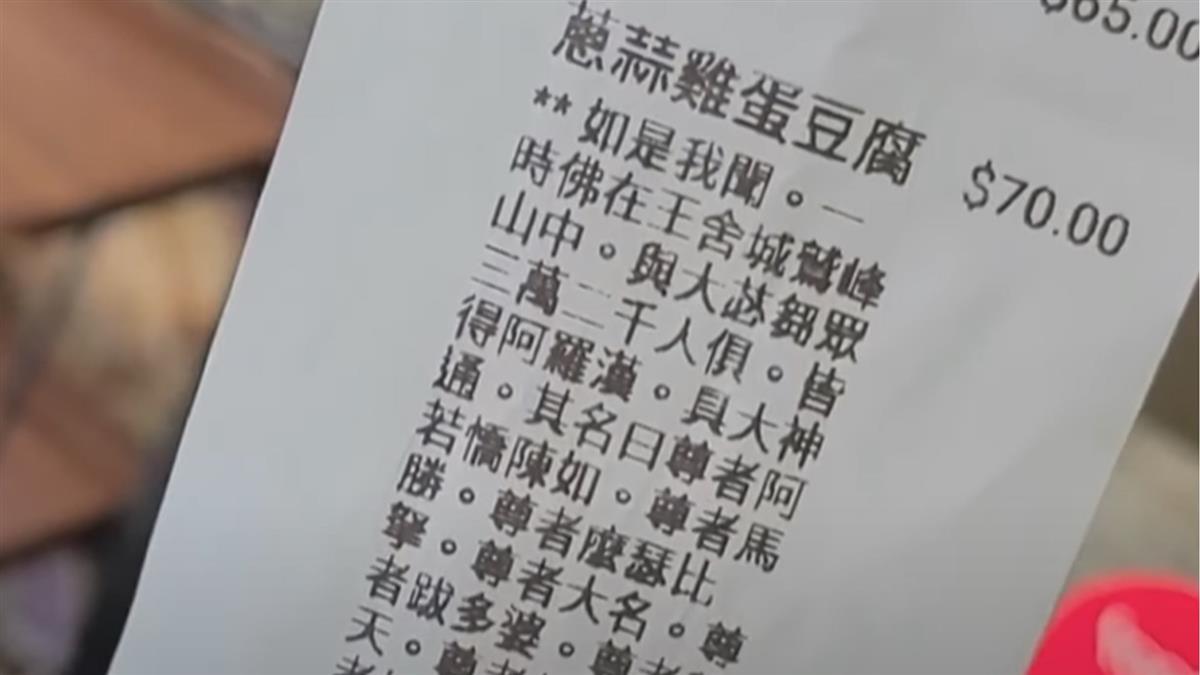 $65.00
蔥蒜雞蛋豆腐 $70.00
** 如是我聞。一
時佛在王舍城鷲峰
山中。與大苾芻眾
三萬二千人俱。皆
得阿羅漢。具大神
通。其名曰尊者阿
若憍陳如。尊者馬
勝。尊者麼瑟比
拏。尊者大名。尊
者跋多婆。尊者
天。尊者